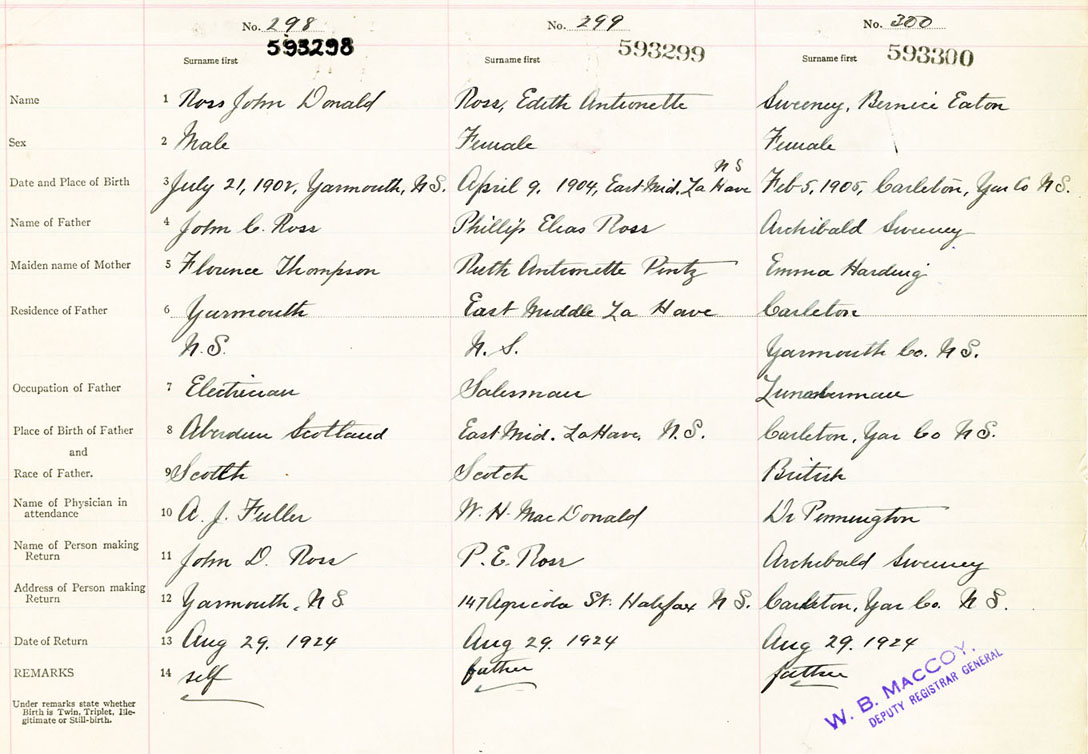 No. 298 No. 299 No. 300
593298 593299 593300
Surname first Surname first Surname first
Name 1 Ross John Donald Ross, Edith Antionette Sweeney, Bernice Eaton
Sex 2 Male Female Female
N S
Date and Place of Birth 3 July 21, 1902, Yarmouth, N.S. April 9, 1904, East Mid. La Have Feb 5, 1905, Carleton, Yar Co N.S.
Name of Father 4 John C. Ross Phillip Elias Ross Archibald Sweeney
Maiden name of Mother 5 Florence Thompson Ruth Antionette Pentz Emma Harding
Residence of Father 6 Yarmouth East Middle La Have Carleton
N.S. N. S. Yarmouth Co. N.S.
Occupation of Father 7 Electrician Salesman Lumberman
Place of Birth of Father 8 Aberdeen Scotland East Mid. LaHave, N.S. Carleton, Yar Co N.S.
and
Race of Father. 9 Scotch Scotch British
Name of Physician in
attendance 10 A. J. Fuller W. H. MacDonald Dr Pennington
Name of Person making
Return 11 John D. Ross P. E. Ross Archibald Sweeney
Address of Person making
Return 12 Yarmouth, N S 147 Agricola St. Halifax N S. Carleton, Yar Co. N S.
Date of Return 13 Aug 29, 1924 Aug 29, 1924 Aug 29, 1924
REMARKS 14 self father father
Under remarks state whether
Birth is Twin, Triplet, Ille-
gitimate or Still-birth.
W. B. MACCOY,
DEPUTY REGISTRAR GENERAL